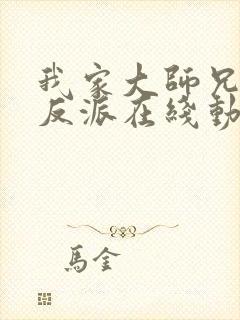 我家大師兄
反派在綫動
馬金